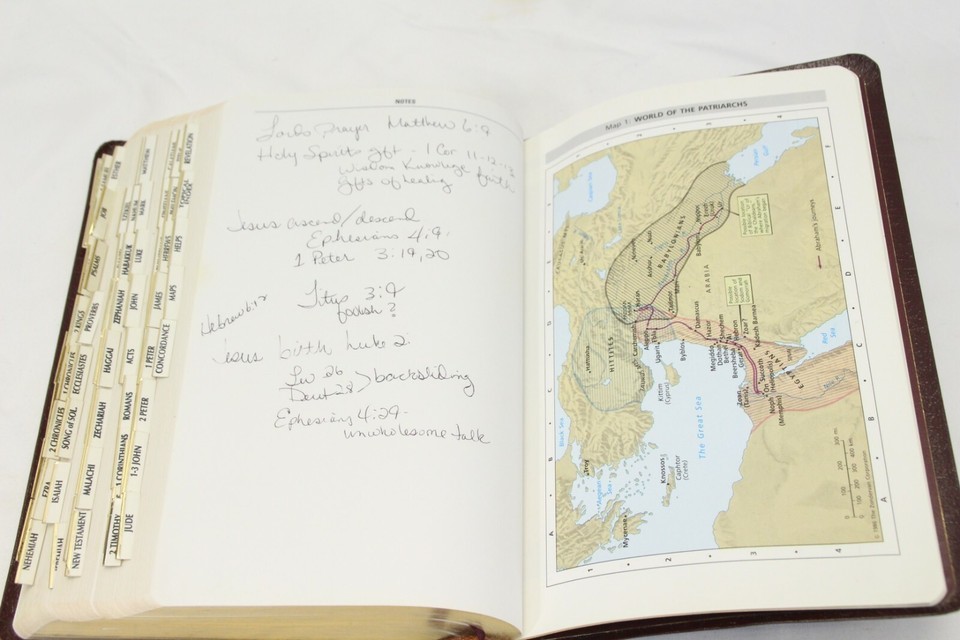 NOTES
Lords Prayer Matthew 6:9
Holy Spirits gft - 1 Cor 11-12-13
Wisdom Knowledge faith
gifts of healing
Jesus ascend/descend
Ephesians 4:9.
1 Peter 3:19,20
Titus 3:9
foolish?
Hebrew 6:17
Jesus birth Luke 2:
Lev 26
Deut 28 > backsliding
Ephesians 4:29-
unwholesome talk
Map 1: WORLD OF THE PATRIARCHS
Caspian Sea
Persian Gulf
BABYLONIANS
ARABIA
HITTITES
EGYPTIANS
Black Sea
Aegean Sea
The Great Sea
Red Sea
Troy
Mycenae
Knossos
Caphtor
(Crete)
Kittim
(Cyprus)
Haran
Carchemish
Aleppo
Ebla
Ugarit
Byblos
Damascus
Mari
Asshur
Nuzi
Nineveh
Babylon
Nippur
Ur
Hazor
Megiddo
Dothan
Shechem
Bethel
Beersheba
Hebron
Gerar
Zoar?
Kadesh Barnea
Zoan
(Tanis)
Succoth
On
(Heliopolis)
Noph
(Memphis)
Abraham's journeys
NEHEMIAH
EZRA
2 CHRONICLES
1 CHRONICLES
2 KINGS
ESTHER
JOB
PSALMS
PROVERBS
ECCLESIASTES
SONG of SOL
ISAIAH
JEREMIAH
EZEKIEL
NAHUM
HABAKKUK
ZEPHANIAH
HAGGAI
ZECHARIAH
MALACHI
NEW TESTAMENT
MATTHEW
MARK
LUKE
JOHN
ACTS
ROMANS
1 CORINTHIANS
2 TIMOTHY
HEBREWS
JAMES
1 PETER
2 PETER
1-3 JOHN
JUDE
REVELATION
HELPS
MAPS
CONCORDANCE